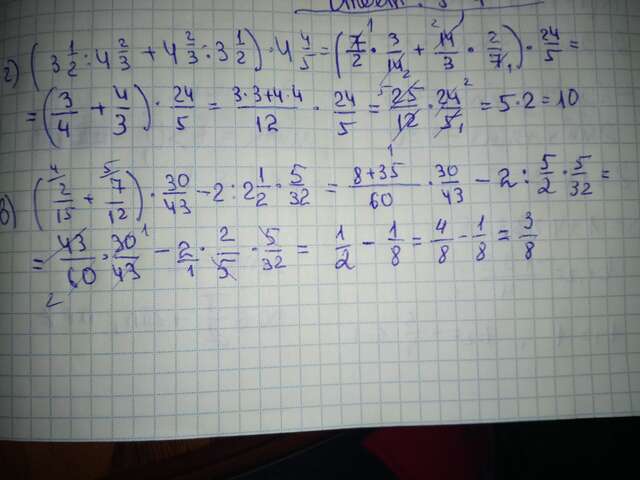 г) (3 1/2 : 4 2/3 + 4 2/3 : 3 1/2) · 4 4/5 = (7/2 · 3/14 + 14/3 · 2/7) · 24/5 =
= (3/4 + 4/3) · 24/5 = (3·3+4·4)/12 · 24/5 = 25/12 · 24/5 = 5·2=10
в) (2/15 + 7/12) · 30/43 - 2 : 2 1/2 · 5/32 = (8+35)/60 · 30/43 - 2 : 5/2 · 5/32 =
= 43/60 · 30/43 - 2/1 · 2/5 · 5/32 = 1/2 - 1/8 = 4/8 - 1/8 = 3/8